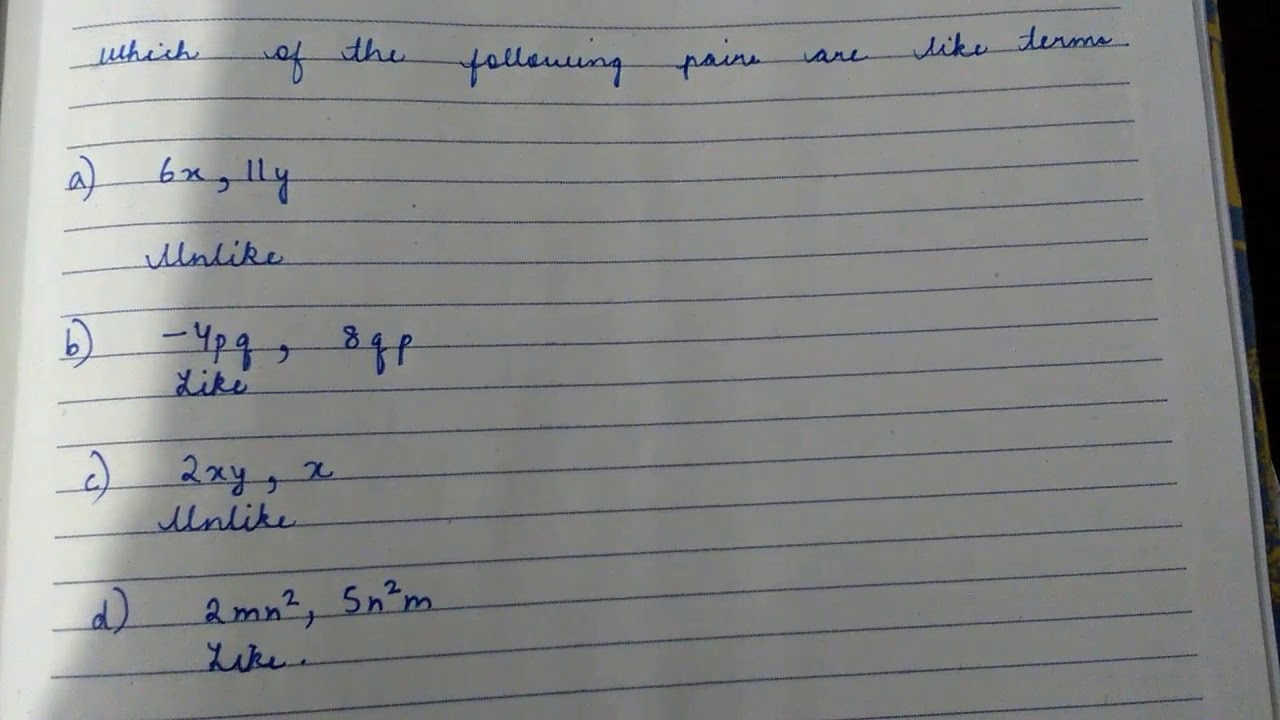 which of the following pairs are like terms
a) 6x, 11y
Unlike
b) -4pq, 8qp
Like
c) 2xy, x
Unlike
d) 2mn², 5n²m
Like.